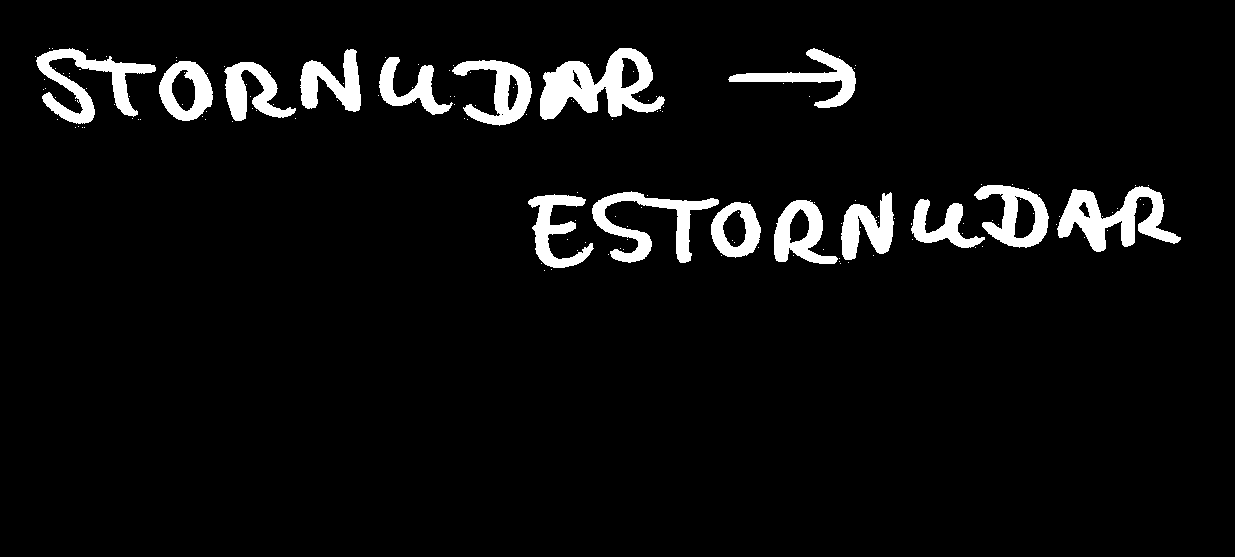 STORNUDAR →
ESTORNUDAR